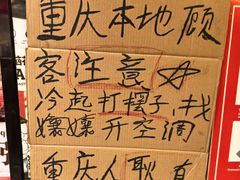 重庆本地顾
客注意☆
冷起打摆子,找
孃孃开空调
重庆人耿